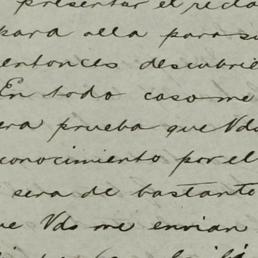 presentar el recla
para alla para su
entonces descubrie
En todo caso me
era prueba que Vds
conocimiento por el
sera de bastante
ue Vds me envian